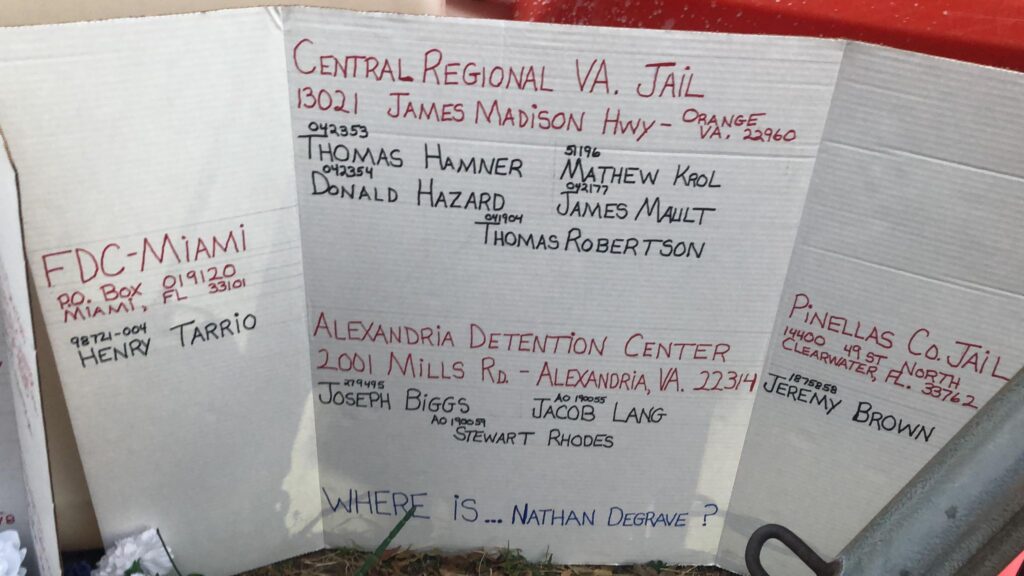 CENTRAL REGIONAL VA. JAIL
13021 JAMES MADISON HWY - ORANGE VA. 22960
042353
THOMAS HAMNER
042354
DONALD HAZARD
51196
MATHEW KROL
042177
JAMES MAULT
041904
THOMAS ROBERTSON
FDC-MIAMI
P.O. BOX 019120
MIAMI, FL 33101
98721-004
HENRY TARRIO
ALEXANDRIA DETENTION CENTER
2001 MILLS RD. - ALEXANDRIA, VA. 22314
279495
JOSEPH BIGGS
AO 190055
JACOB LANG
AO 190059
STEWART RHODES
PINELLAS CO. JAIL
14400 49 ST NORTH
CLEARWATER, FL. 33762
1875858
JEREMY BROWN
WHERE IS... NATHAN DEGRAVE ?